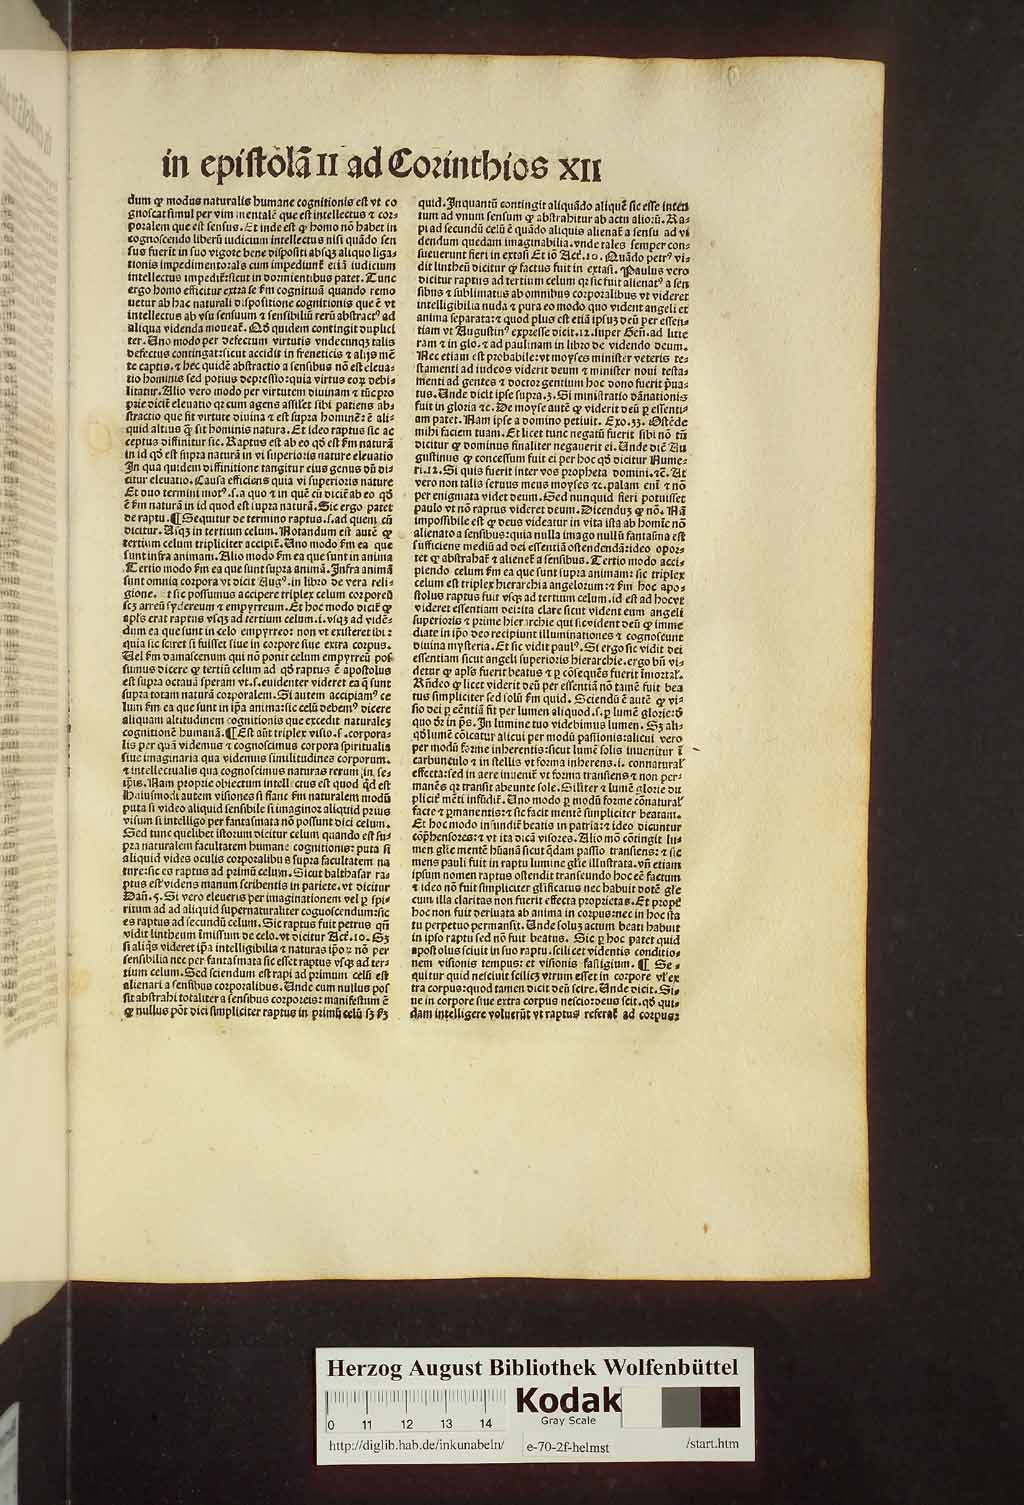 in epistolā II ad Corinthios XII
dum ꝙ modus naturalis humane cognitionis est vt co
gnoscat simul per vim mentalē que est intellectus ⁊ cor⸗
poralem que est sensus. Et inde est ꝙ homo nō habet in
cognoscendo liberū iudicium intellectus nisi quādo sen
sus fuerit in suo vigore bene dispositi absqꝫ aliquo liga⸗
tionis impedimento: als cum impediunt᷑ etiā iudicium
intellectus impedit᷑ sicut in dormientibus patet. Tunc
ergo homo efficitur extra se ẜm cognitiuā quando remo
uetur ab hac naturali dispositione cognitionis que ē vt
intellectus ab vsu sensuum ⁊ sensibiliū rerū abstractꝰ ad
aliqua videnda moueat᷑. Qḋ quidem contingit duplici
ter. Uno modo per defectum virtutis vndecunqꝫ talis
defectus contingat: sicut accidit in freneticis ⁊ alijs mē
te captis. ⁊ hec quidē abstractio a sensibus nō est eleua⸗
tio hominis sed potius depressio: quia virtus eorꝫ debi⸗
litatur. Alio vero modo per virtutem diuinam ⁊ tūc pro
prie dicit᷑ eleuatio qꝛ cum agens assilet sibi patiens ab⸗
stractio que fit virtute diuina ⁊ est supra hominē: ē ali⸗
quid altius q̄ sit hominis natura. Et ideo raptus sic ac
ceptus diffinitur sic. Raptus est ab eo qḋ est ẜm naturā
in id qḋ est supra naturā in vi superioris nature eleuatio
In qua quidem diffinitione tangitur eius genus dū di⸗
citur eleuatio. Causa efficiens quia vi superioris nature
Et duo termini motꝰ .s. a quo ⁊ in quē cū dicit᷑ ab eo qḋ
ē ẜm naturā in id quod est supra naturā. Sic ergo patet
de raptu. ¶ Sequitur de termino raptus .s. ad quem cū
dicitur. Usqꝫ in tertium celum. Notandum est autē ꝙ
tertium celum tripliciter accipit᷑. Uno modo ẜm ea que
sunt infra animam. Alio modo ẜm ea que sunt in anima
Tertio modo ẜm ea que sunt supra animā. Infra animā
sunt omnia corpora vt dicit Augꝰ. in libro de vera reli⸗
gione. t sic possumus accipere triplex celum corporeū
scꝫ arreū sydereum ⁊ empyrreum. Et hoc modo dicit᷑ ꝙ
apls erat raptus vsqꝫ ad tertium celum .i. vsqꝫ ad vidē⸗
dum ea que sunt in celo empyrreo: non vt existeret ibi:
quia sic sciret si fuisset siue in corpore siue extra corpus.
Uel ẜm damascenum qui nō ponit celum empyrreū pos⸗
sumus dicere ꝙ tertiū celum ad qḋ raptus ē apostolus
est supra octauā speram vt .s. euidenter videret ea q̄ sunt
supra totam naturā corporalem. Si autem accipiamꝰ ce
lum ẜm ea que sunt in ipa anima: sic celū debemꝰ dicere
aliquam altitudinem cognitionis que excedit naturalez
cognitionē humanā. ¶ Est aūt triplex visio .s. corpora⸗
lis per quā videmus ⁊ cognoscimus corpora spiritualis
siue imaginaria qua videmus similitudines corporum.
⁊ intellectualis qua cognoscimus naturas rerum in se⸗
ipsis. Nam proprie obiectum intellectus est quod qd est
Huiusmodi autem visiones si fiant ẜm naturalem modū
puta si video aliquid sensibile si imaginor aliquid prius
visum si intelligo per fantasmata nō possunt dici celum.
Sed tunc quelibet istorum dicitur celum quando est su⸗
pra naturalem facultatem humane cognitionis: puta si
aliquid vides oculis corporalibus supra facultatem na
ture: sic es raptus ad primū celum. Sicut balthasar ra⸗
ptus est videns manum scribentis in pariete. vt dicitur
Dan. 5. Si vero eleueris per imaginationem vel ꝑ spi⸗
ritum ad ad aliquid supernaturaliter cognoscendum: sic
es raptus ad secundū celum. Sic raptus fuit petrus qn̄
vidit lintheum ēmissum de celo. vt dicitur Act. 10. Sꝫ
si aliqs videret ipa intelligibilia ⁊ naturas ipoꝝ nō per
sensibilia nec per fantasmata sic esset raptus vsqꝫ ad ter⸗
tium celum. Sed sciendum est rapi ad primum celū est
alienari a sensibus corporalibus. Unde cum nullus pos
sit abstrahi totaliter a sensibus corporeis: manifestum ē
ꝙ nullus pōt dici simpliciter raptus in primū celū sꝫ ẜm
quid. Inquantū contingit aliquādo aliquē sic esse inten
tum ad vnum sensum ꝙ abstrahitur ab actu alioꝝ. Ra⸗
pi ad secundū celū ē quādo aliquis alienat᷑ a sensu ad vi
dendum quedam imaginabilia. vnde tales semper con⸗
sueuerunt fieri in extasi Et iō Act. 10. Quādo petrꝰ vi⸗
dit lintheū dicitur ꝙ factus fuit in extasi. Paulus vero
dicitur raptus ad tertium celum qꝛ sic fuit alienatꝰ a sen
sibus ⁊ sublimatus ab omnibus corporalibus vt videret
intelligibilia nuda ⁊ pura eo modo quo vident angeli et
anima separata: ⁊ quod plus est etiā ipsuꝫ deū per essen⸗
tiam vt Augustinꝰ expresse dicit. 12. super Gen. ad litte
ram ⁊ in glo. ⁊ ad paulinam in libro de videndo deum.
Nec etiam est probabile: vt moyses minister veteris te⸗
stamenti ad iudeos viderit deum ⁊ minister noui testa⸗
menti ad gentes ⁊ doctor gentium hoc dono fuerit pua⸗
tus. Unde dicit ipse supra. 3. Si ministratio dānationis
fuit in gloria ⁊c. De moyse autē ꝙ viderit deū ꝑ essenti⸗
am patet. Nam ipse a domino petiuit. Exo. 33. Ostēde
mihi faciem tuam. Et licet tunc negatū fuerit sibi nō tn̄
dicitur ꝙ dominus finaliter negauerit ei. Unde dicit Au
gustinus ꝙ concessum fuit ei per hoc qḋ dicitur Nume⸗
ri. 12. Si quis fuerit inter vos propheta domini. ⁊c. At
vero non talis seruus meus moyses ⁊c. palam enī ⁊ nō
per enigmata videt deum. Sed nunquid fieri potuisset
paulo vt nō raptus videret deum. Dicenduꝫ ꝙ nō. Nā
impossibile est ꝙ deus videatur in vita ista ab homīe nō
alienato a sensibus: quia nulla imago nullū fantasma est
sufficiens mediū ad dei essentiā ostendendā: ideo opor⸗
tet ꝙ abstrahat᷑ ⁊ alienet᷑ a sensibus. Tertio modo acci⸗
piendo celum ẜm ea que sunt supra animam: sic triplex
celum est triplex hierarchia angelorum: ⁊ ẜm hoc apo⸗
stolus raptus fuit vsqꝫ ad tertium celum. id est ad hoc vt
videret essentiam dei: ita clare sicut vident eum angeli
superioris ⁊ prime hierarchie qui sic vident deū ꝙ imme
diate in ipo deo recipiunt illuminationes ⁊ cognoscunt
diuina mysteria. Et sic vidit paulꝰ. Si ergo sic vidit dei
essentiam sicut angeli superioris hierarchie. ergo bn̄ vi⸗
detur ꝙ apls fuerit beatus ⁊ ꝑ cōseqn̄s fuerit īmortal᷑.
Rn̄deo ꝙ licet viderit deū per essentiā nō tamē fuit bea
tus simpliciter sed solū ẜm quid. Sciendū ē autē ꝙ vi⸗
sio dei ꝑ eēntiā fit per lumen aliquod .s. ꝑ lumē glorie: ḋ
quo ḋr in ps. In lumine tuo videbimus lumen. Sꝫ ali⸗
qḋ lumē cōicatur alicui per modū passionis: alicui vero
per modū forme inherentis: sicut lumē solis inuenitur ī
carbunculo ⁊ in stellis vt forma inherens .i. connatural᷑
effecta: sed in aere inuenit᷑ vt forma transiens ⁊ non per⸗
manēs qꝛ transit abeunte sole. Silīter ⁊ lumē glorie du
plicit᷑ mēti infūdit᷑. Uno modo ꝑ modū forme cōnatural᷑
facte ⁊ ꝑmanentis: ⁊ sic facit mentē simpliciter beatam.
Et hoc modo infundit᷑ beatis in patria: ⁊ ideo dicuntur
cōphensores: ⁊ vt ita dicā visores. Alio mō cōtingit lu⸗
men glie mentē hūanā sicut qdam passio transiens: ⁊ sic
mens pauli fuit in raptu lumine glie illustrata. vn̄ etiam
ipsum nomen raptus ostendit transeundo hoc eē factum
⁊ ideo nō fuit simpliciter glificatus nec habuit dotē glie
cum illa claritas non fuerit effecta proprietas. Et propt᷑
hoc non fuit deriuata ab anima in corpus: nec in hoc sta
tu perpetuo permansit. Unde soluꝫ actum beati habuit
in ipso raptu sed nō fuit beatus. Sic ꝑ hoc patet quid
apostolus sciuit in suo raptu. scilicet videntis conditio⸗
nem visionis tempus: et visionis fastigium. ¶ Se⸗
quitur quid nesciuit scilicꝫ vtrum esset in corpore vl᷑ ex
tra corpus: quod tamen dicit deū scire. Unde dicit. Si⸗
ue in corpore siue extra corpus nescio: deus scit. qḋ qui⸗
dam intelligere voluerūt vt raptus referat᷑ ad corpus:
Herzog August Bibliothek Wolfenbüttel
Kodak
Gray Scale
0 11 12 13 14
http://diglib.hab.de/inkunabeln/ e-70-2f-helmst /start.htm